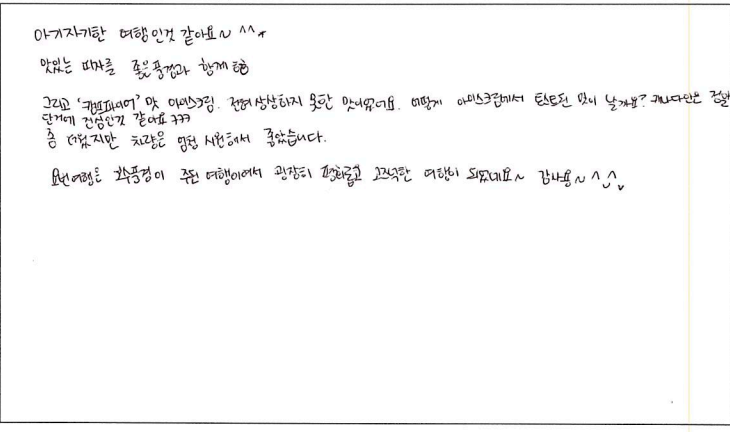 아기자기한 여행인것 같아요~ ^^*
맛있는 피자를 좋은풍경과 함께
그리고 '캠프파이어' 맛 아이스크림. 전혀 상상하지 못한 맛이었어요. 어떻게 아이스크림에서 토스트된 맛이 날까요? 캐나다인은 정말
단거에 진심인것 같아요 ㅋㅋㅋ
좀 더웠지만 차량은 엄청 시원해서 좋았습니다.
요번여행은 호수풍경이 주된 여행이어서 굉장히 평화롭고 고즈넉한 여행이 되었네요~ 감사용~ ^^